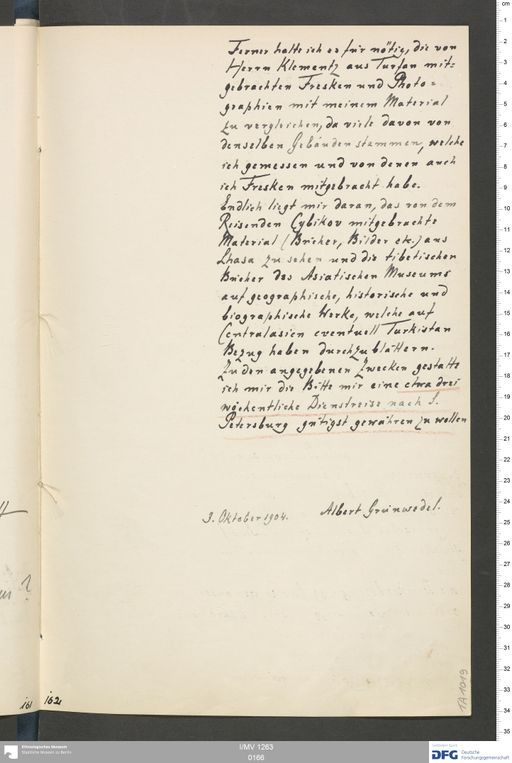 Ferner halte ich es für nötig, die von
Herrn Klementz aus Turfan mit=
gebrachten Fresken und Photo=
graphien mit meinem Material
zu vergleichen, da viele davon von
denselben Gebäuden stammen, welche
ich gemessen und von denen auch
ich Fresken mitgebracht habe.
Endlich liegt mir daran, das von dem
Reisenden Cybikov mitgebrachte
Material (Bücher, Bilder etc.) aus
Lhasa zu sehen und die tibetischen
Bücher des Asiatischen Museums
auf geographische, historische und
biographische Werke, welche auf
Centralasien eventuell Turkistan
Bezug haben durchzublättern.
Zu den angegebenen Zwecken gestatte
ich mir die Bitte mir eine etwa drei
wöchentliche Dienstreise nach S.
Petersburg gütigst gewähren zu wollen
3. Oktober 1904. Albert Grünwedel.
161 162
TA 1019
Ethnologisches Museum
Staatliche Museen zu Berlin
I/MV 1263
0166
DFG
Deutsche
Forschungsgemeinschaft